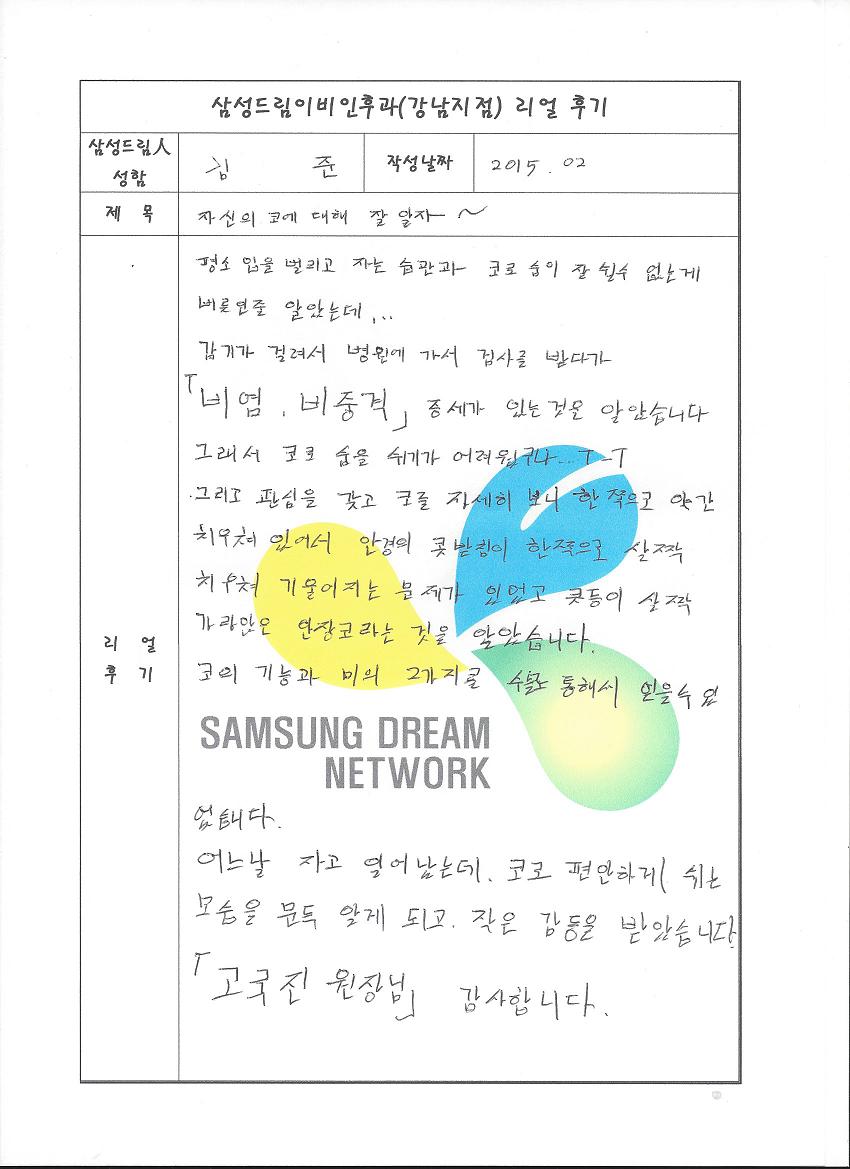 삼성드림이비인후과(강남지점) 리얼 후기
삼성드림人 성함 김 준 작성날짜 2015.02
제 목 자신의 코에 대해 잘 알자~
리 얼 후 기
평소 입을 벌리고 자는 습관과 코로 숨이 잘 쉴수 없는게
버릇인줄 알았는데...
감기가 걸려서 병원에 가서 검사를 받다가
「비염, 비중격」 증세가 있는것을 알았습니다
그래서 코로 숨을 쉬기가 어려웠구나...T-T
그리고 관심을 갖고 코를 자세히 보니 한쪽으로 약간
치우쳐 있어서 안경의 콧받침이 한쪽으로 살짝
치우쳐 기울어지는 문제가 있었고 콧등이 살짝
가라앉은 안장코라는 것을 알았습니다.
코의 기능과 미의 2가지를 수술로 통해서 얻을수 있
SAMSUNG DREAM
NETWORK
었습니다.
어느날 자고 일어났는데, 코로 편안하게 쉬는
모습을 문득 알게 되고, 작은 감동을 받았습니다.
「고국진 원장님」 감사합니다.